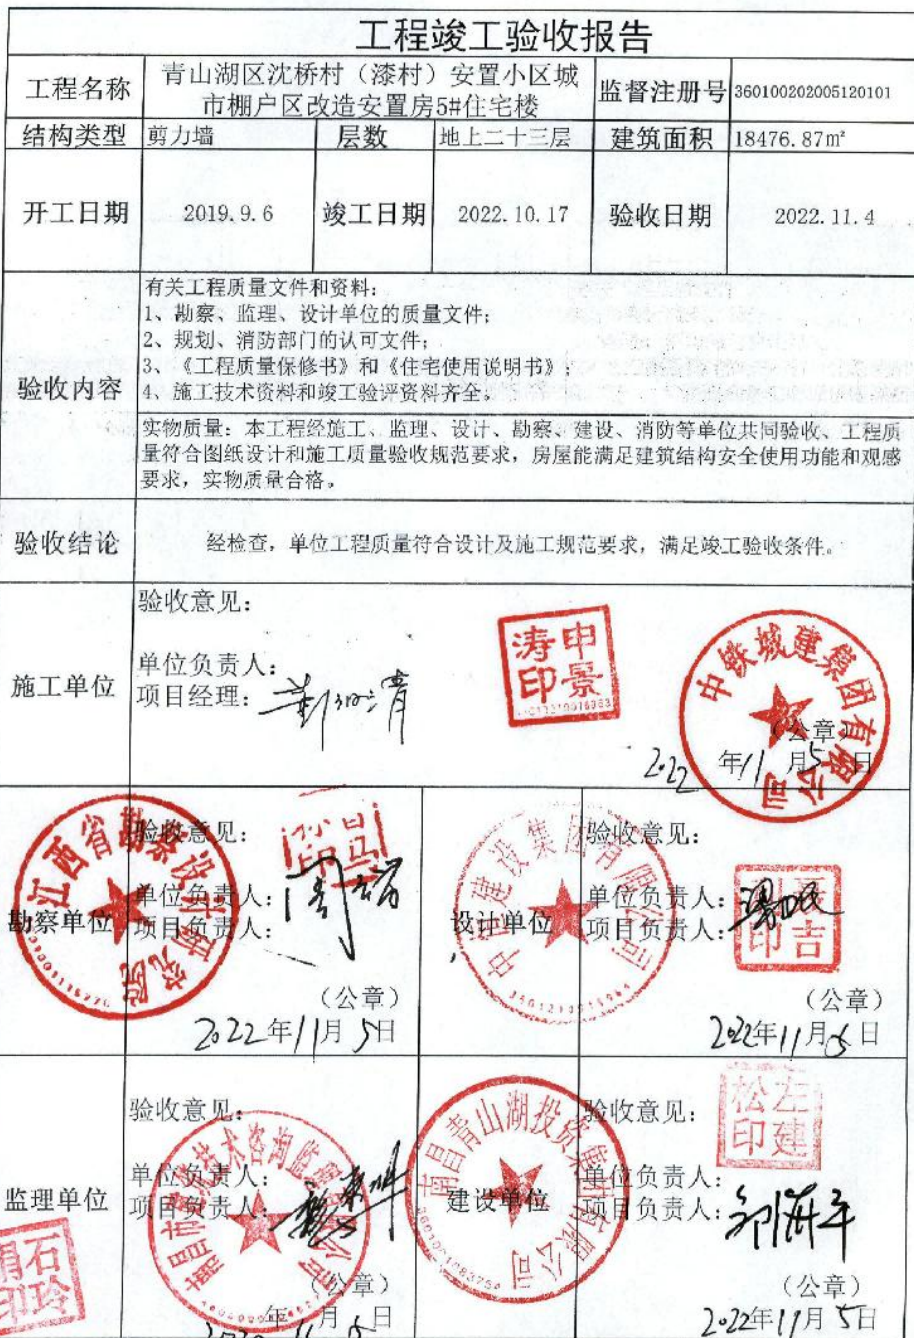 工程竣工验收报告
工程名称
青山湖区沈桥村（漆村）安置小区城
市棚户区改造安置房5#住宅楼
监督注册号
360100202005120101
结构类型
剪力墙
层数
地上二十三层
建筑面积
18476.87㎡
开工日期
2019.9.6
竣工日期
2022.10.17
验收日期
2022.11.4
验收内容
有关工程质量文件和资料：
1、勘察、监理、设计单位的质量文件；
2、规划、消防部门的认可文件；
3、《工程质量保修书》和《住宅使用说明书》；
4、施工技术资料和竣工验评资料齐全。
实物质量：本工程经施工、监理、设计、勘察、建设、消防等单位共同验收、工程质
量符合图纸设计和施工质量验收规范要求，房屋能满足建筑结构安全使用功能和观感
要求，实物质量合格。
验收结论
经检查，单位工程质量符合设计及施工规范要求，满足竣工验收条件。
施工单位
验收意见：
单位负责人：
项目经理：
申景涛印
中铁城建集团有限公司
（公章）
2022年11月5日
勘察单位
验收意见：
单位负责人：
项目负责人：
江西省勘察设计研究院
（公章）
2022年11月5日
设计单位
验收意见：
单位负责人：
项目负责人：
建设集团有限公司
（公章）
2022年11月5日
监理单位
验收意见：
单位负责人：
项目负责人：
南昌市
技术咨询监理
石玲
印
（公章）
年11月5日
建设单位
验收意见：
单位负责人：
项目负责人：
南昌青山湖投资集团有限公司
左建松印
（公章）
2022年11月5日